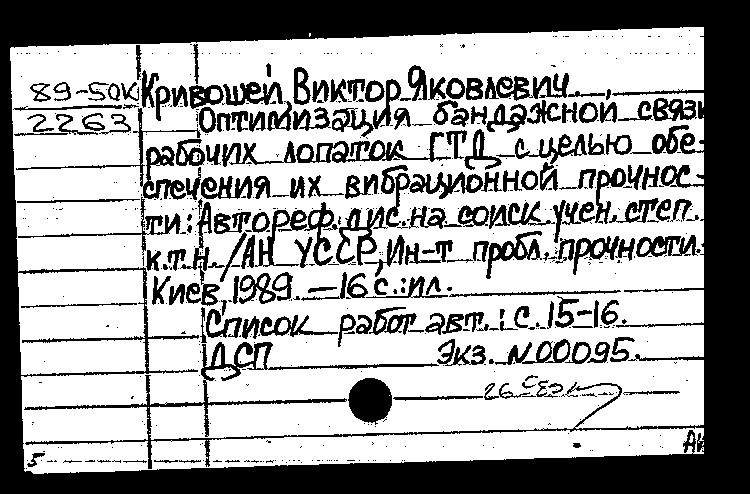 89-50К Кривошей, Виктор Яковлевич.
2263 Оптимизация бандажной связи
рабочих лопаток ГТД с целью обе-
спечения их вибрационной прочнос-
ти: Автореф. дис. на соиск. учен. степ.
к.т.н. /АН УССР, Ин-т пробл. прочности.
Киев, 1989. — 16 с.: ил.
Список работ авт.: с. 15-16.
ДСП Экз. N00095.
26
5